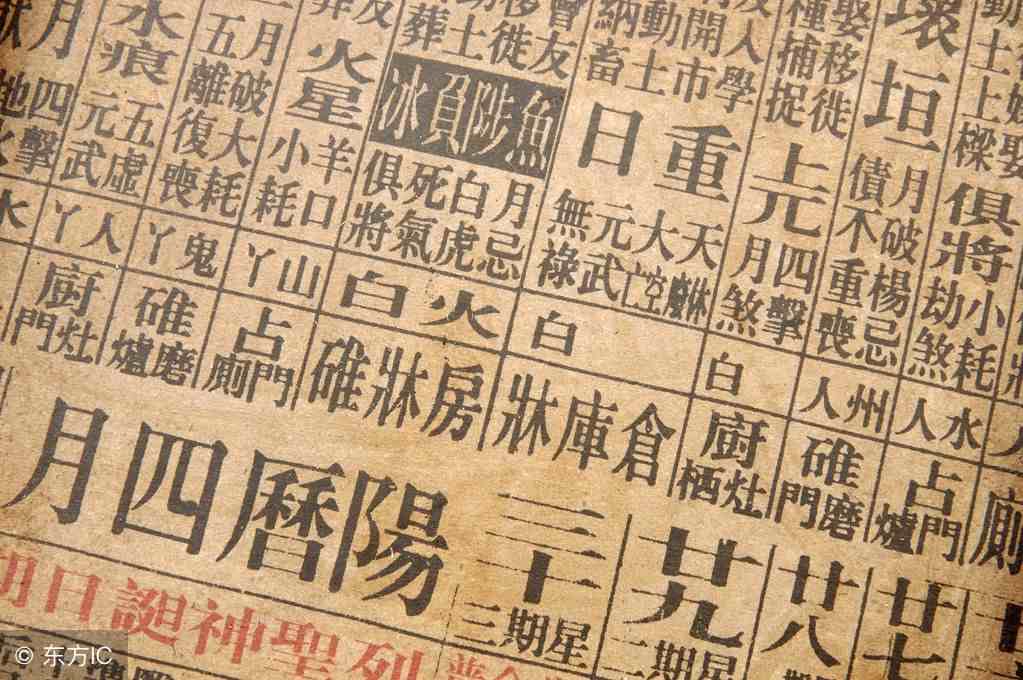 上樑
俱將
小耗
劫煞
水人
占
門爐
廿七
壞垣
月破楊忌
債不重喪
州人
碓
磨門
廿八
娶移徙
種捕捉
上兀
四擊
月煞
白
廚
灶栖
廿九
星期二
人學
開市
動土
納畜
重日
天休廢
大空亡
元武
無祿
白
倉庫牀
三十
星期三
會友
移徙
土
葬
魚陟負冰
月忌
白虎
死氣
俱將
火白
房牀碓
火星
羊口
小耗
山丫
占
門廁
月破大耗
五離復喪
鬼丫
碓
磨爐
水痕
五虛
元武
人丫
廚
灶門
四擊
陽曆四月
列聖神誕日期
© 东方IC